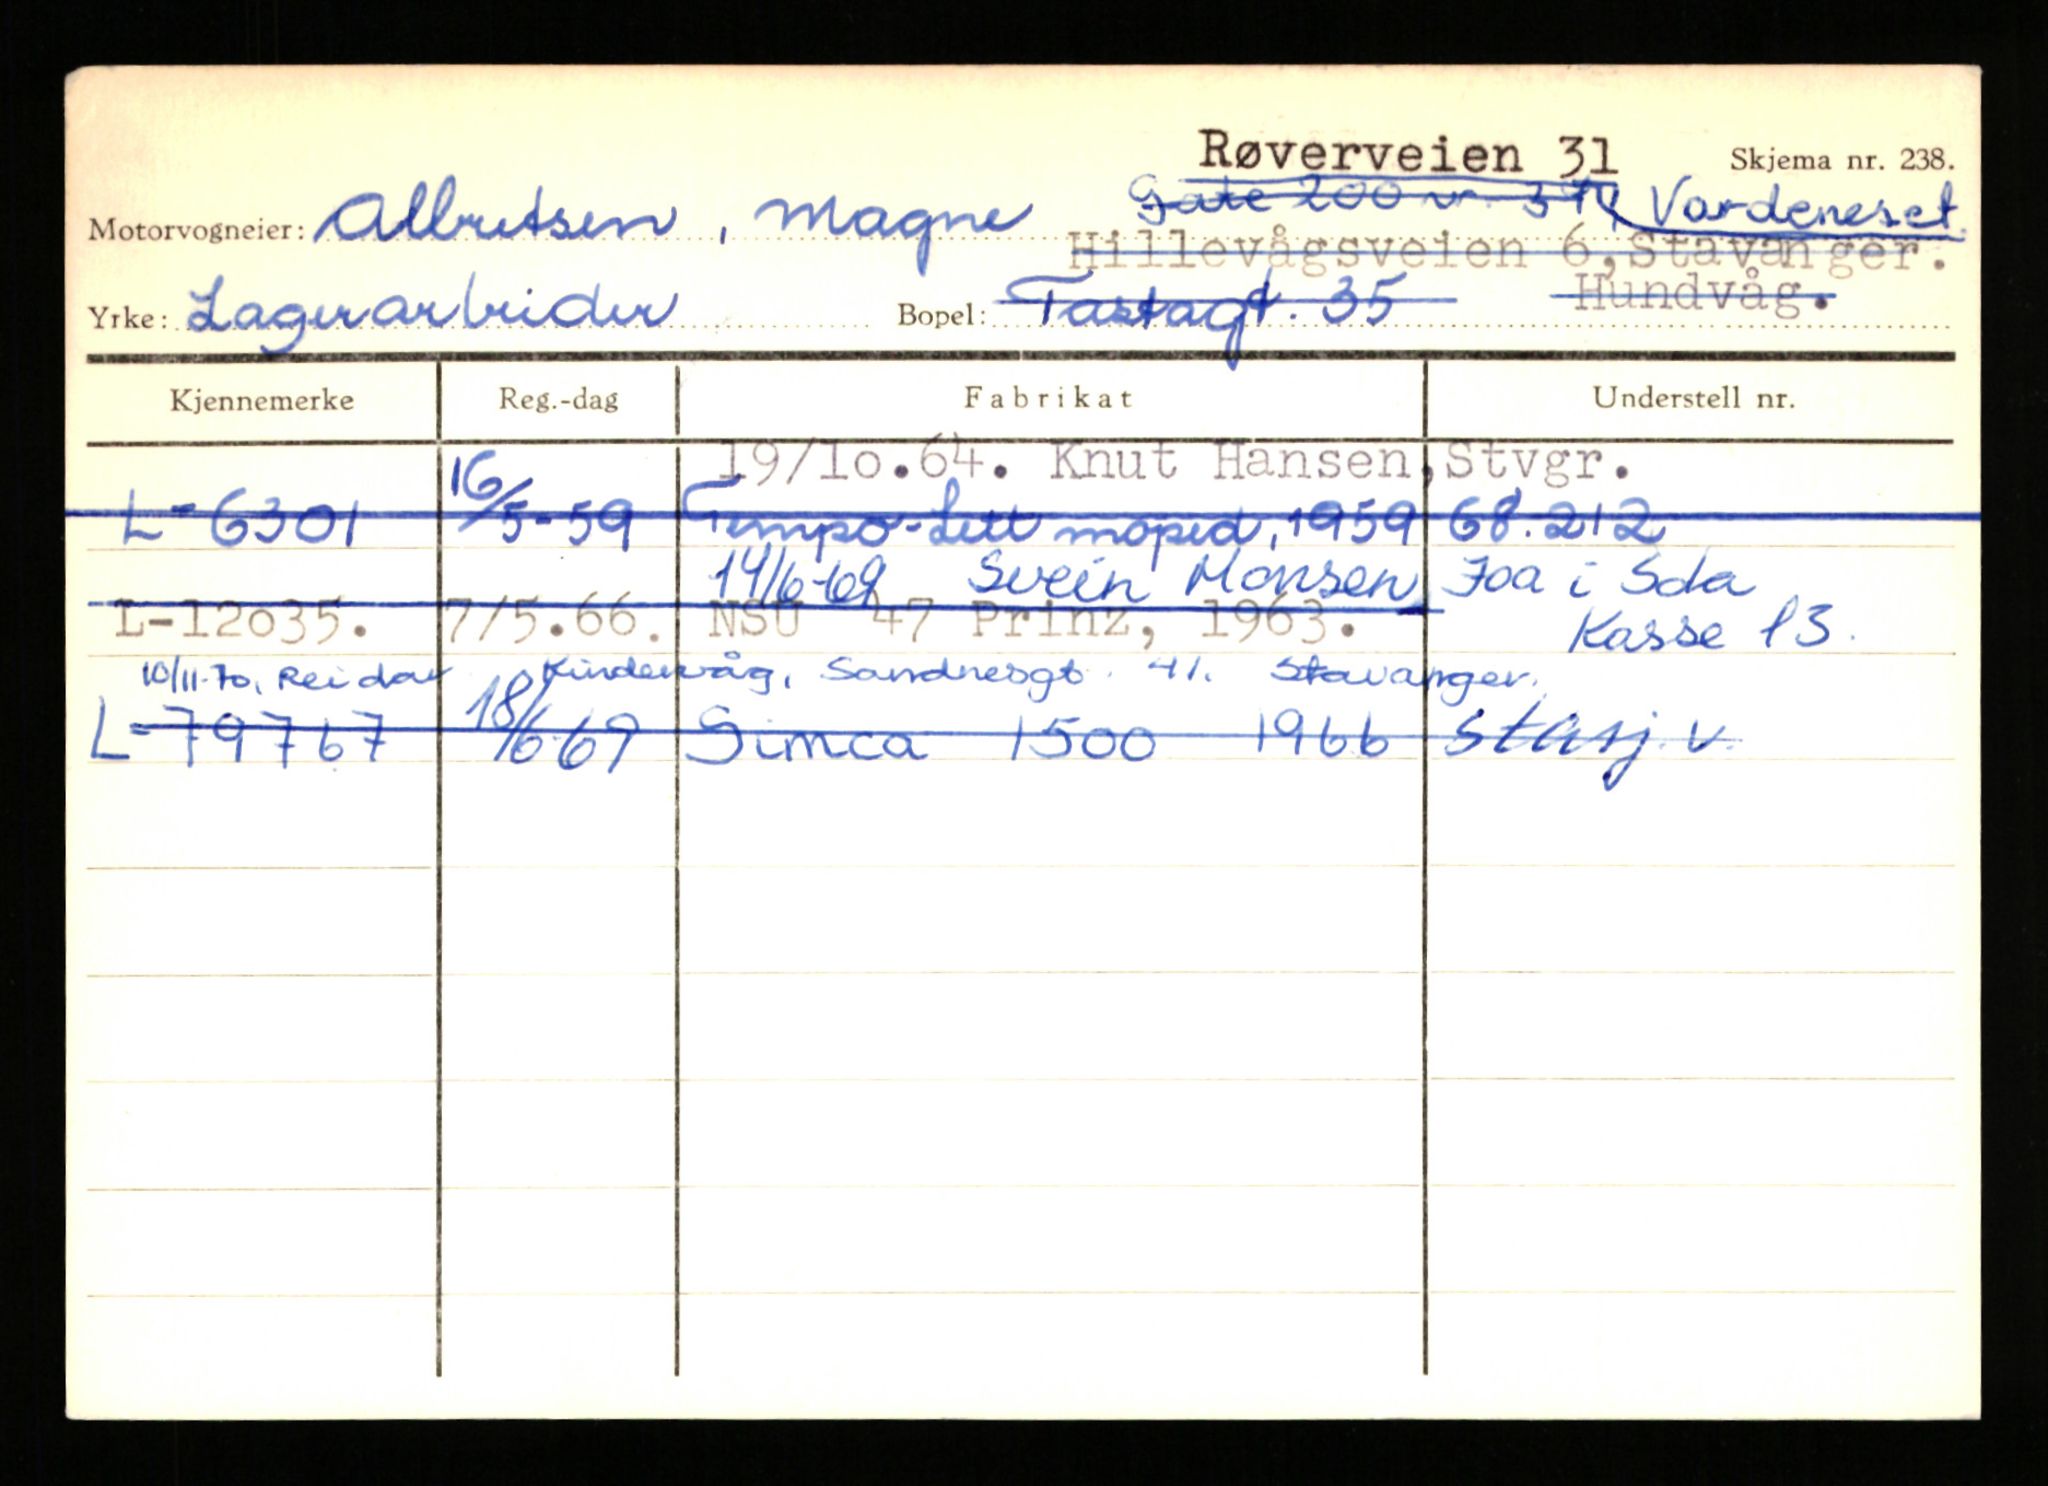 Røverveien 31 Skjema nr. 238.
Gate 200 nr. 37 Vardeneset
Motorvogneier: Albretsen, Magne
Hillevågsveien 6, Stavanger.
Hundvåg.
Yrke: Lagerarbeider Bopel: Tastagt. 35
Kjennemerke Reg.-dag Fabrikat Understell nr.
19/1o.64. Knut Hansen, Stvgr.
L-6301 16/5-59 Tempo-Lett moped, 1959 68.212
14/6-69 Svein Monsen Joa i Sola
L-12o35. 7/5.66. NSU 47 Prinz, 1963. Kasse 13.
10/11.70. Reidar Kindervåg, Sandnesgt. 41. Stavanger.
L-79767 18/6-69 Simca 1500 1966 Stasj. v.